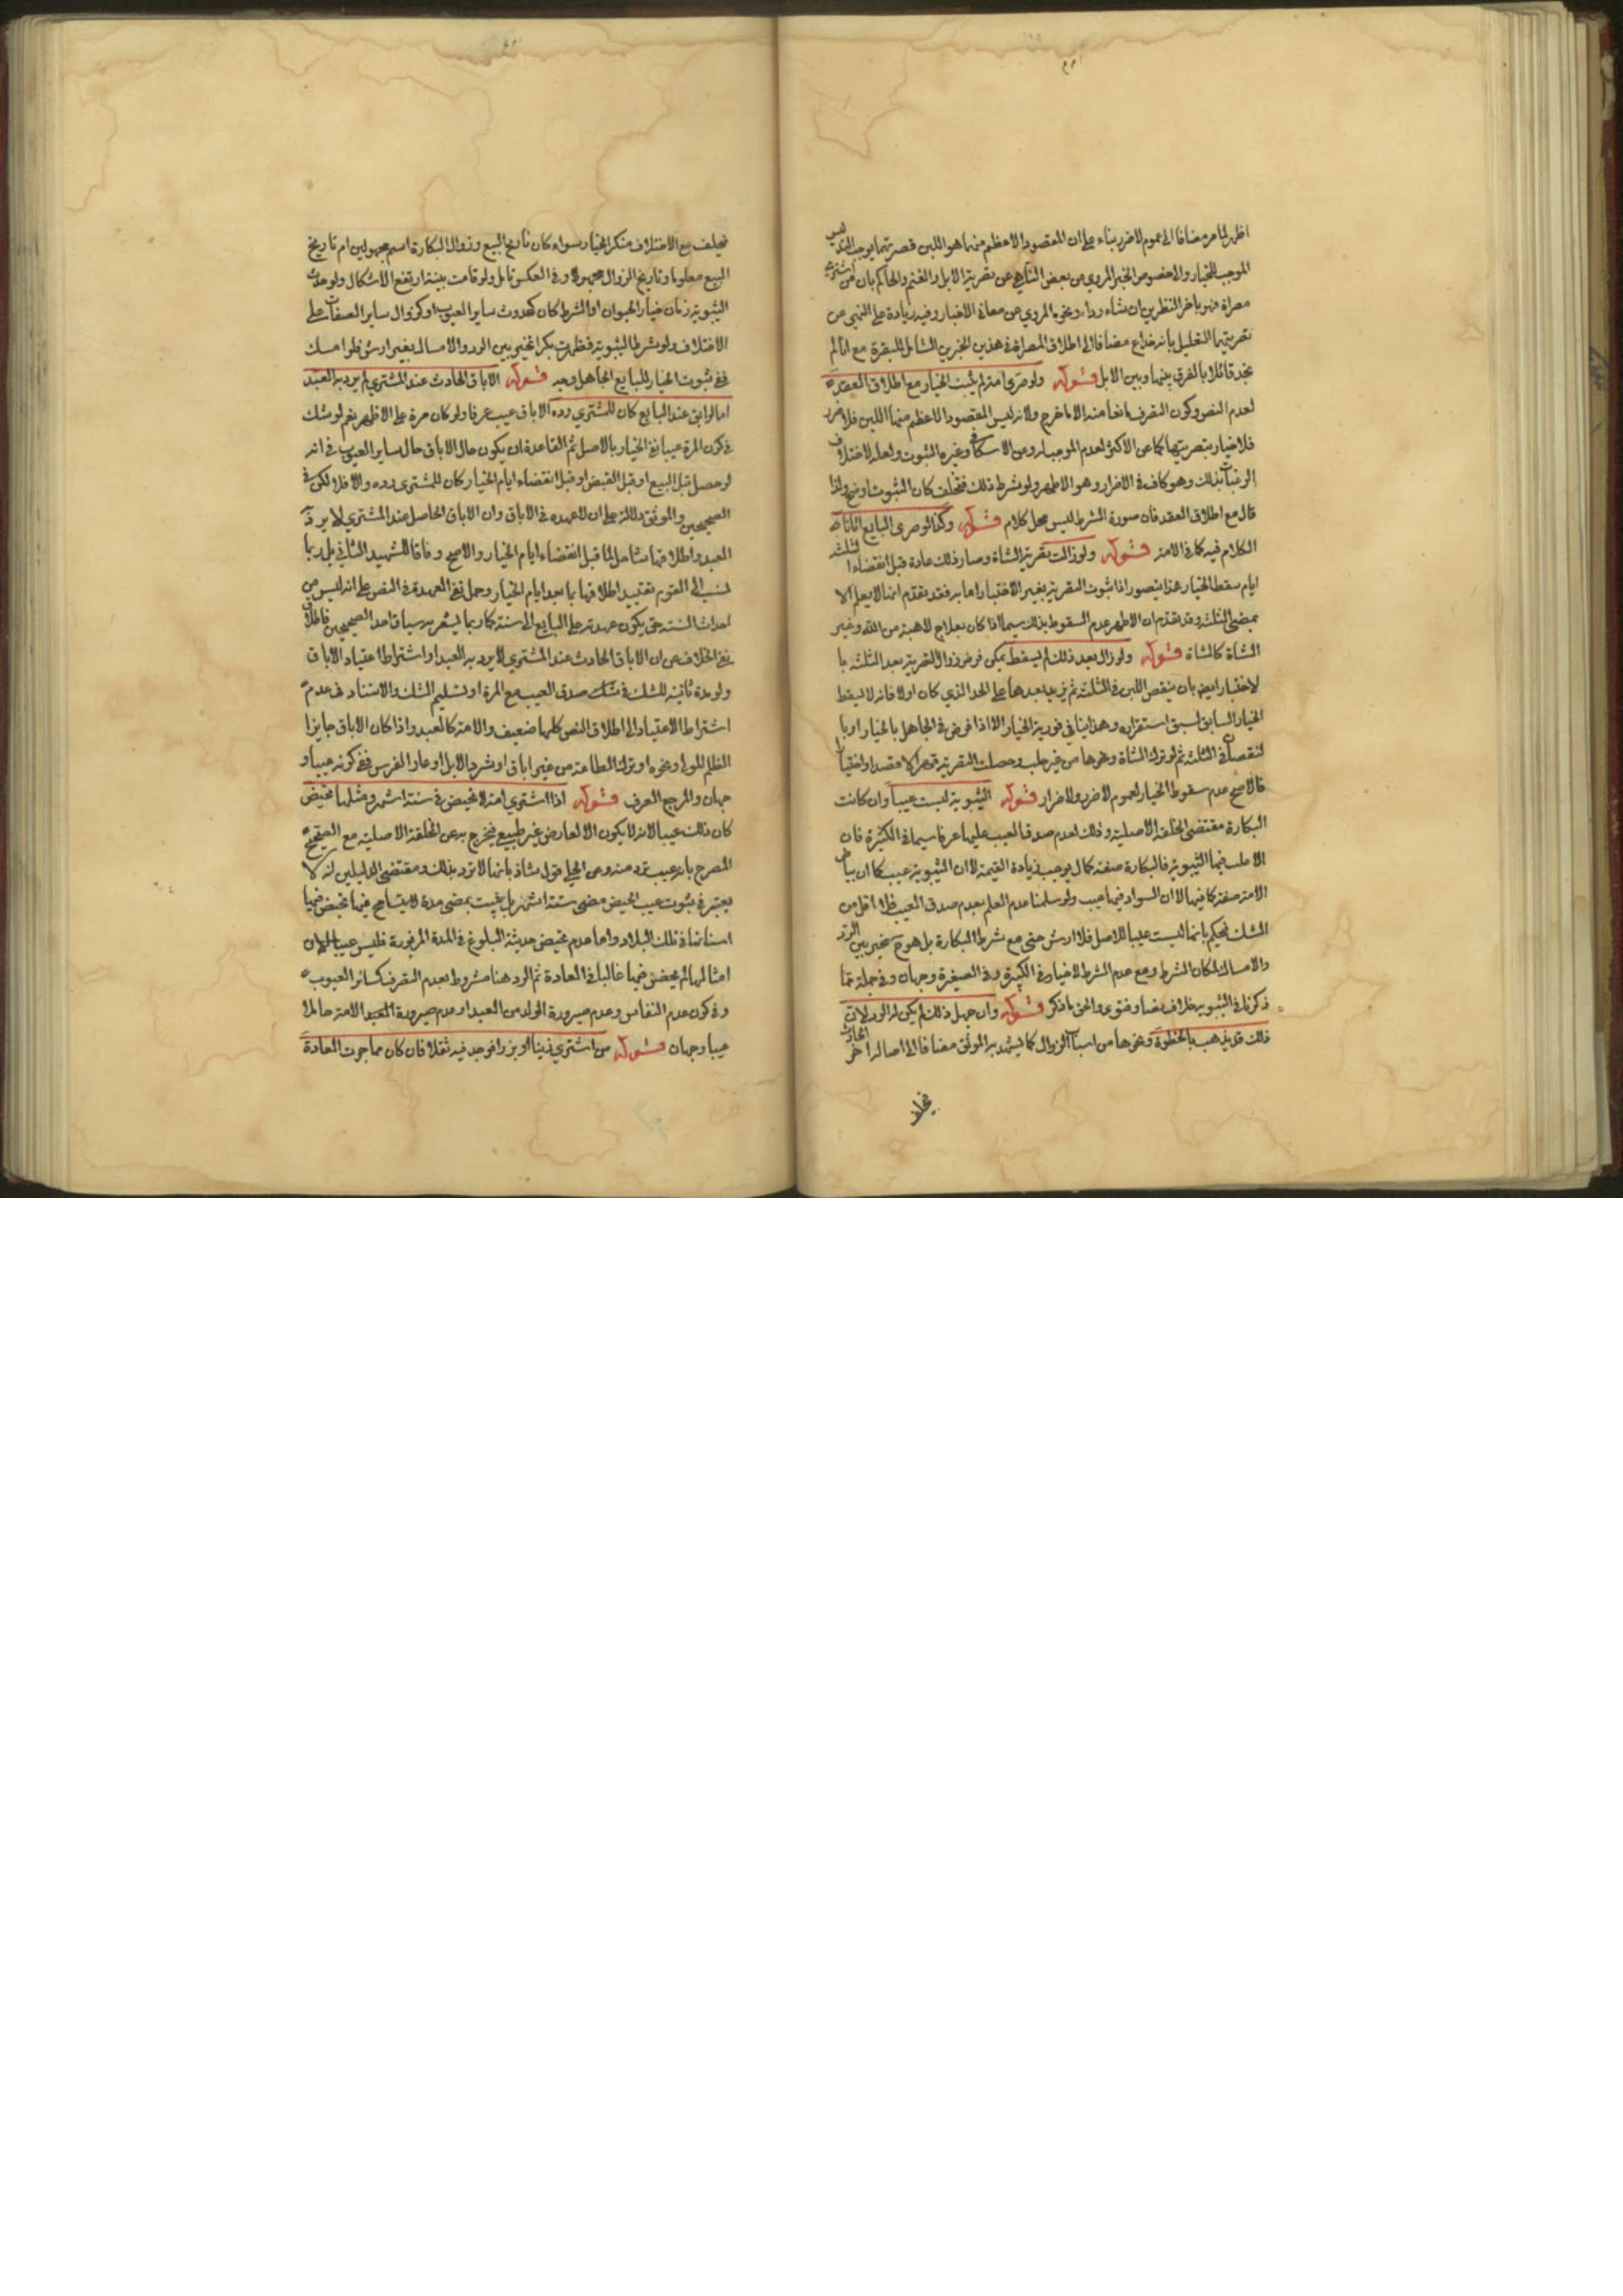 اظهر لما مر مضافا الى عموم لا ضرر بناء على ان المقصود الاعظم منهما هو اللبن فصريتهما يوجب التدليس
الموجب للخيار والا خصوص الخبر المروي من بعض الناهي عن تصرية الابل والغنم والحاكم بان من اشترى
مصراة فهو باخر النظرين ان شاء رد ونحوه المروي عن معاني الاخبار وفيه زيادة على النهي عن
تصريتهما التعليل بانه خداع مضافا الى اطلاق المصراة في هذين الخبرين الشامل للبقرة مع انا لم
نجد قائلا بالفرق بينهما وبين الابل قوله ولو صرى امة لم يثبت الخيار مع اطلاق العقد
لعدم النص وكون التصرف مانعا منه الا ما خرج ولانه ليس المقصود الاعظم منهما اللبن فلا ضرر
فلا خيار بتصريتها كما عن الاكثر لعدم الموجب له وعن الاسكافي وغيره الثبوت ولعله لاختلاف
الرغبات بذلك وهو كاف في الاضرار وهو الاظهر ولو شرط ذلك فتخلف كان الثبوت اوضح ولذا
قال مع اطلاق العقد فان صورة الشرط ليس محل كلام قوله وكذا لو صرى البايع اتانا
الكلام فيه كما في الامة قوله ولو زالت تصرية الشاة وصار ذلك عادة قبل انقضاء ثلثة
ايام سقط الخيار هذا يتصور اذا ثبوت التصرية بغير الاختبار اما به فقد تقدم انها لا يعلم الا
بمضي الثلثة وقد تقدم ان الاظهر عدم السقوط بذلك سيما اذا كان بعلاج لا هبة من الله وغير
الشاة كالشاة قوله ولو زال بعد ذلك لم يسقط يمكن فرض زوال التصرية بعد الثلثة با
لاختبار ايض بان ينقص اللبن في الثلثة ثم يزيد بعدها على الحد الذي كان اولا فانه لا يسقط
الخيار السابق لسبق استقراره وهذا ينافي فورية الخيار الا اذا فرض في الجاهل بالخيار او با
لنقصان في الثلثة ثم لو ترك الشاة ونحوها من غير حلب وحصلت التصرية قهرا لا قصدا واختيارا
فالاصح عدم سقوط الخيار لعموم لا ضرر ولا ضرار قوله الثيوبة ليست عيبا وان كانت
البكارة مقتضى الخلقة الاصلية وذلك لعدم صدق العيب عليها عرفا سيما في الكثيرة فان
الاغلب فيها الثيوبة فالبكارة صفة كمال يوجب زيادة القيمة لا ان الثيوبة عيب كما ان بياض
الامة صفة كما فيها لا ان السواد فيها عيب ولو سلمنا عدم العلم بعدم صدق العيب فلا اقل من
الشك فيحكم بانها ليست عيبا للاصل فلا ارش حتى مع شرط البكارة بل هو ح مخير بين الرد
والامساك لمكان الشرط ومع عدم الشرط لا خيار في الكبيرة وفي الصغيرة وجهان وفي جملة مما
ذكرنا في الثيوبة خلاف نصا وفتوى والحق ما ذكر قوله وان جهل ذلك لم يكن له الرد لان
ذلك قد يذهب بالخطوة ونحوها من اسباب الزوال كما يشهد به الموثق مضافا الى اصالة تاخر الحادث
فيحلف
فيحلف مع الاختلاف منكر الخيار سواء كان تاريخ البيع وزوال البكارة اسم مجهولين ام تاريخ
البيع معلوما وتاريخ الزوال مجهولا وفي العكس تامل ولو قامت بينة ارتفع الاشكال ولو حدث
الثيوبة زمان خيار الحيوان او الشرط كان كحدوث ساير العيوب او كزوال ساير الصفات على
الاختلاف ولو شرط الثيوبة فظهرت بكرا تخير بين الرد والامساك بغير ارش فلو امسك
ففي ثبوت الخيار للبايع الجاهل وجه قوله الاباق الحادث عند المشتري لم يرد به العبد
اما لو ابق عند البايع كان للمشتري رده الاباق عيب عرفا ولو كان مرة على الاظهر نعم لو شك
في كون المرة عيبا نفي الخيار بالاصل ثم القاعدة ان يكون حال الاباق حال ساير العيوب في انه
لو حصل قبل البيع او قبل القبض او قبل انقضاء ايام الخيار كان للمشتري رده والا فلا لكن في
الصحيحين والموثق دلالة على ان لا عهدة في الاباق وان الاباق الحاصل عند المشتري لا يرد
العبد واطلاقها شامل لما قبل انقضاء ايام الخيار والاصح وفاقا للشهيد الثاني بل ربما
نسب الى القوم تقييد اطلاقها بما بعد ايام الخيار وحمل نفي العهدة في النص على انه ليس من
احداث السنة حتى يكون عهدته على البايع الى سنة كما ربما يشعر به سياق احد الصحيحين فاطلاق
نفي الخلاف عن ان الاباق الحادث عند المشتري لا يرد به العبد او اشتراط اعتياد الاباق
ولو مرة ثانية للشك في شك صدق العيب مع المرة او تسليم الشك والاستناد في عدم
اشتراط الاعتياد الى اطلاق النص كلها ضعيف والامة كالعبد واذا كان الاباق جايزا
لظلم المولى او نحوه او ترك الطاعة من غير اباق او شرد الابل او عار الفرس ففي كونه عيبا و
جهان والمرجع العرف قوله اذا اشترى امة لا تحيض في ستة اشهر ومثلها تحيض
كان ذلك عيبا لانه لا يكون الا لعارض غير طبيعي فيخرج به عن الخلقة الاصلية مع الصحيح
المصرح بانه عيب ترد منه وعن الحلي قول شاذ بانها لا ترد بذلك ومقتضى الدليلين انه لا
يعتبر في ثبوت عيب الحيض مضي ستة اشهر بل يثبت بمضي مدة لا يتسامح فيها تحيض فيها
اسنانها في تلك البلاد واما عدم تحيض حديثة البلوغ في المدة المزبورة فليس عيبا لان
امثالها لم يحضن فيها غالبا في العادة ثم الرد هنا مشروط بعدم التصرف كسائر العيوب
وفي كون عدم النفاس وعدم صيرورة الولد من العبد او عدم صيرورة العبد الامة حاملا
عيبا وجهان قوله من اشترى زيتا او بزرا فوجد فيه ثفلا فان كان مما جرت العادة